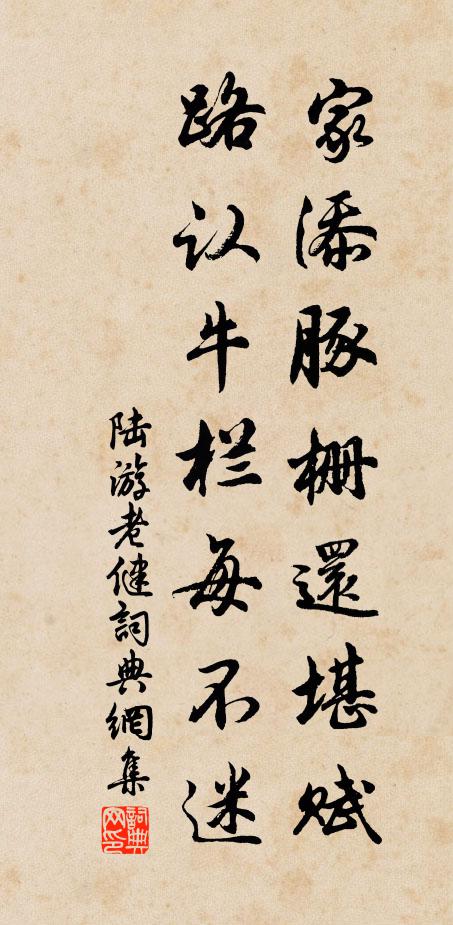 家添豚栅還堪赋
路认牛栏每不迷
陆游老健詞典網集
詞典网印